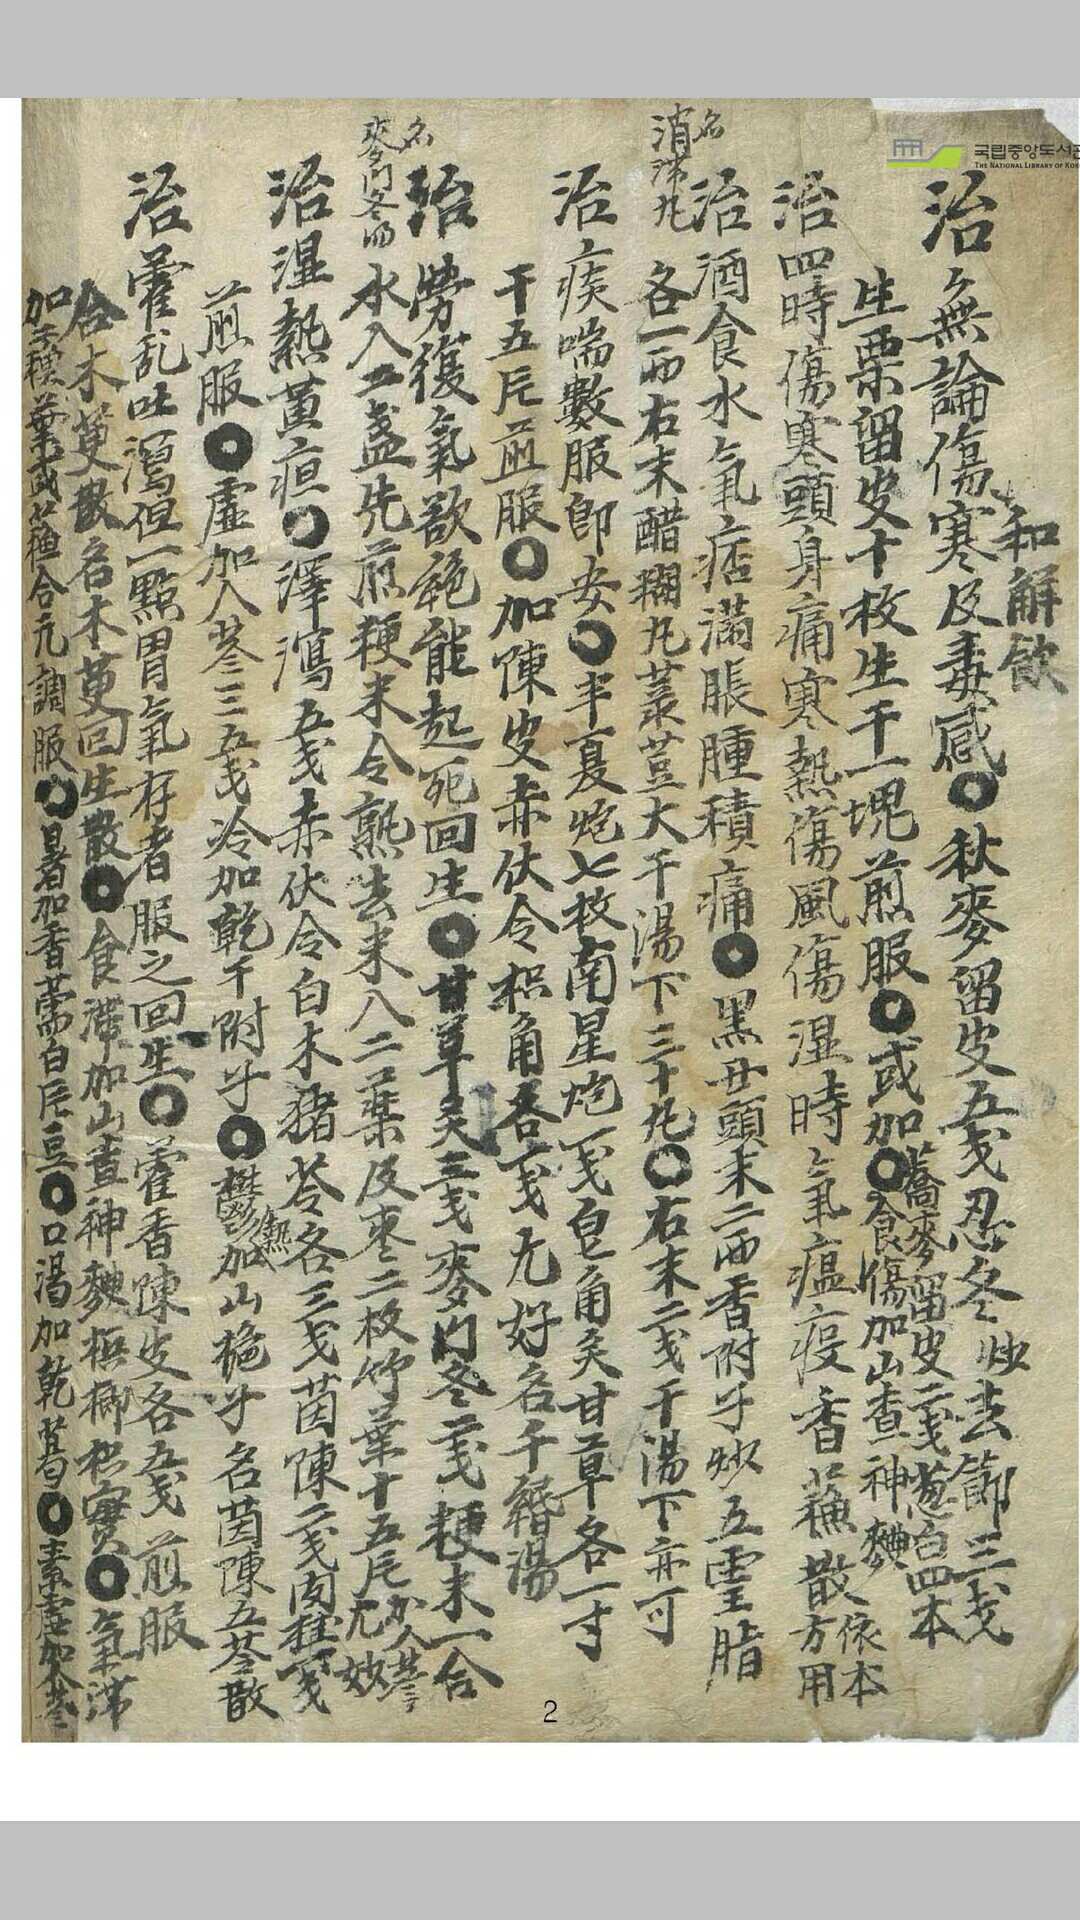 국립중앙도서관
THE NATIONAL LIBRARY OF KOREA
和解飮
治無論傷寒及毒感○秋麥留皮五戔忍冬炒去節三戔
生栗留皮十枚生干一塊煎服○或加蕎麥留皮二戔葱白四本○食傷加山査神麯
治四時傷寒頭身痛寒熱傷風傷濕時氣瘟疫香蘓散依本方用
治酒食水氣痞滿脹腫積痛○黑丑頭末二両香附子炒五靈脂
名消滯丸
各一両右末醋糊丸菉荳大干湯下三十丸○右末二戔干湯下亦可
治痰喘數服卽安○半夏炮七枚南星炮一戔皂角灸甘草各一寸
干五片煎服○加陳皮赤伏令枳角各一戔尤好名千緡湯
治勞復氣欲絶能起死回生○甘草灸三戔麥門冬二戔粳米一合
名麥門冬湯
水入二盞先煎粳米令熟去米八二藥及枣二枚竹葉十五片加人蔘尤妙
治濕熱黃疸○澤瀉五戔赤伏令白木猪苓各三戔茵陳二戔肉桂一戔
煎服○虛加人蔘三五戔冷加乾干附子○鬱熱加山梔子名茵陳五苓散
治霍乱吐瀉但一點胃氣存者服之回生○霍香陳皮各五戔煎服
合木萸散名木萸回生散○食滯加山査神麯檳榔枳實○氣滯
加葉或蘓合元調服○暑加香薷白片豆○口渴加乾葛○素虛加人蔘
2